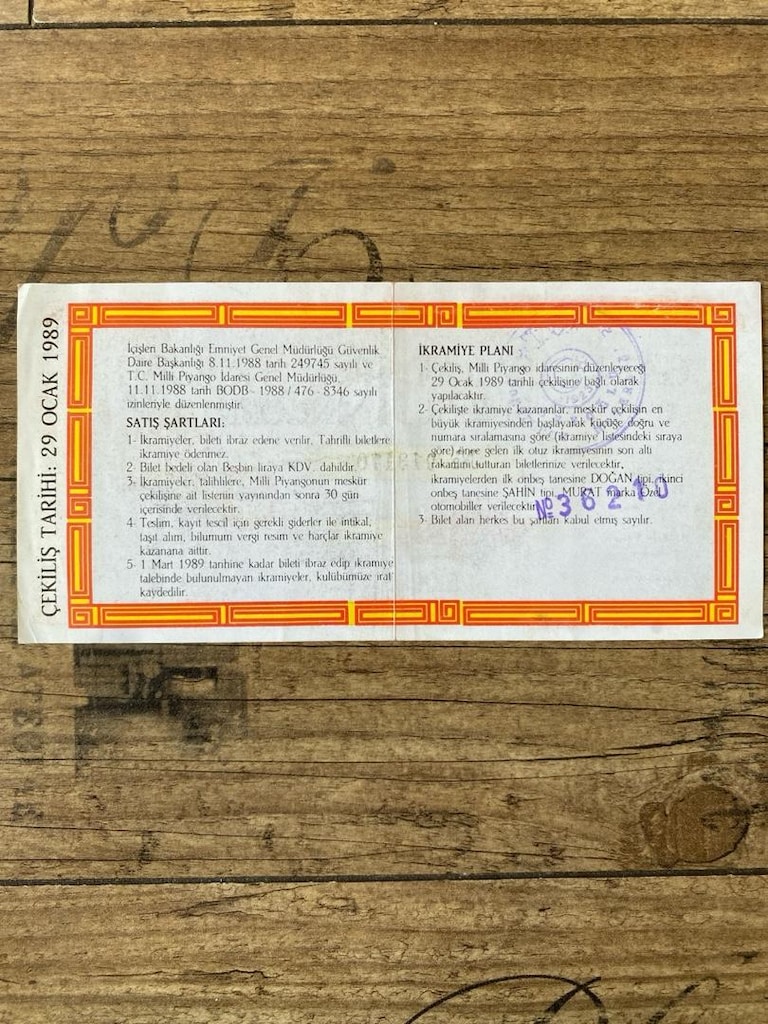 ÇEKİLİŞ TARİHİ: 29 OCAK 1989
İçişleri Bakanlığı Emniyet Genel Müdürlüğü Güvenlik
Daire Başkanlığı 8.11.1988 tarih 249745 sayılı ve
T.C. Milli Piyango İdaresi Genel Müdürlüğü,
11.11.1988 tarih BODB - 1988 / 476 - 8346 sayılı
izinleriyle düzenlenmiştir.
SATIŞ ŞARTLARI:
1- İkramiyeler, bileti ibraz edene verilir. Tahrifli biletlere
ikramiye ödenmez.
2- Bilet bedeli olan Beşbin liraya KDV. dahildir.
3- İkramiyeler, talihlilere, Milli Piyangonun meskûr
çekilişine ait listenin yayınından sonra 30 gün
içerisinde verilecektir.
4- Teslim, kayıt tescil için gerekli giderler ile intikal,
taşıt alım, bilumum vergi resim ve harçlar ikramiye
kazanana aittir.
5- 1 Mart 1989 tarihine kadar bileti ibraz edip ikramiye
talebinde bulunulmayan ikramiyeler, kulübümüze irat
kaydedilir.
İKRAMİYE PLANI
1- Çekiliş, Milli Piyango idaresinin düzenleyeceği
29 Ocak 1989 tarihli çekilişine bağlı olarak
yapılacaktır.
2- Çekilişte ikramiye kazananlar, meskûr çekilişin en
büyük ikramiyesinden başlayarak küçüğe doğru ve
numara sıralamasına göre (ikramiye listesindeki sıraya
göre) önce gelen ilk otuz ikramiyesinin son altı
rakamını tutturan biletlerinize verilecektir,
ikramiyelerden ilk onbeş tanesine DOĞAN tipi, ikinci
onbeş tanesine ŞAHİN tipi, MURAT marka Özel
otomobiller verilecektir.
3- Bilet alan herkes bu şartları kabul etmiş sayılır.
№ 36210